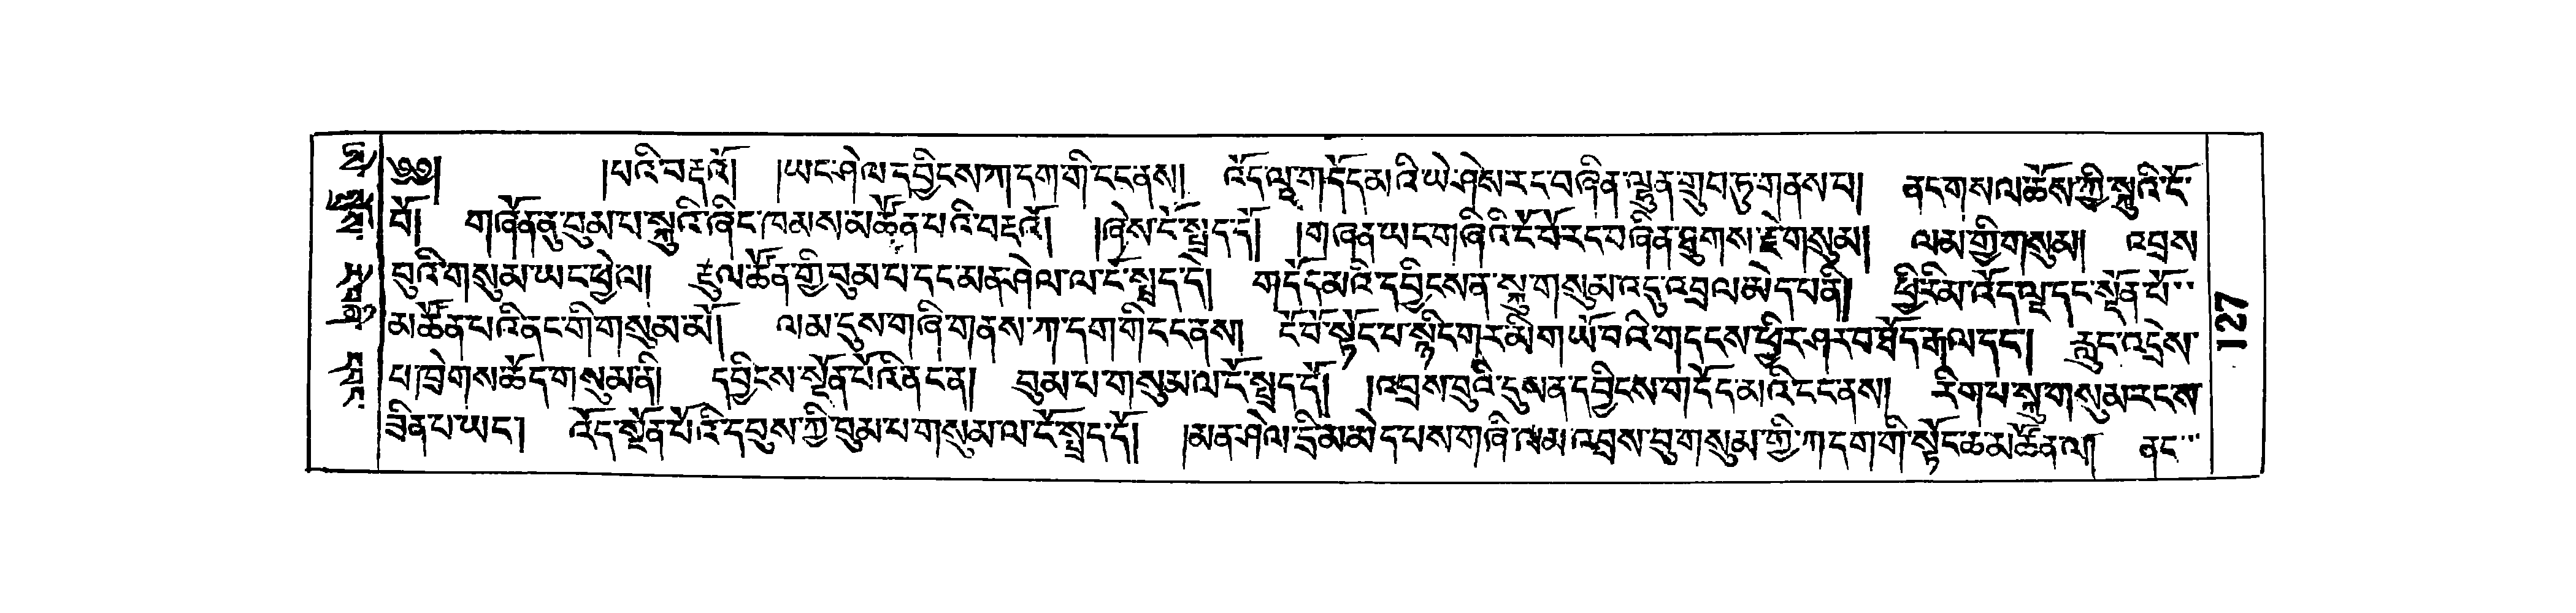 ༄༅།།   །པའི་བརྡའོ།  །ཡང་ཤེལ་དབྱིངས་ཀ་དག་གི་ངང་ནས།  འོད་ལྔ་གདོད་མའི་ཡེ་ཤེས་རང་བཞིན་ལྷུན་གྲུབ་ཏུ་གནས་པ།  ནང་གསལ་ཆོས་ཀྱི་སྐུའི་ངོ་
བོ།  གཞོན་ནུ་བུམ་པ་སྐུའི་ཞིང་ཁམས་མཚོན་པའི་བརྡའོ།  །ཞེས་ངོ་སྤྲད་དོ།  །གཞན་ཡང་གཞིའི་ངོ་བོ་རང་བཞིན་ཐུགས་རྗེ་གསུམ།  ལམ་གྱི་གསུམ།  འབྲས་
བུའི་གསུམ་ཡང་ཕྱེ་ལ།  རྡུལ་ཚོན་གྱི་བུམ་པ་དང་མན་ཤེལ་ལ་ངོ་སྤྲད་དེ།  གདོད་མའི་དབྱིངས་ན་སྐུ་གསུམ་འདུ་འབྲལ་མེད་པ་ནི།  ཕྱི་རིམ་འོད་ལྔ་དང་སྔོན་པོ་
མཚོན་པའི་ནང་གི་གསུམ་མོ།  ལམ་དུས་གཞི་གནས་ཀ་དག་གི་ངང་ནས།  ངོ་བོ་སྟོང་པ་སྙིང་གར་མི་གཡོ་བའི་གདངས་ཕྱིར་ཤར་བ་ཐོད་རྒལ་དང་།  རླུང་འདྲེས་
པ་ཁྲེགས་ཆོད་གསུམ་ནི།  དབྱིངས་སྔོན་པོའི་ནང་ན།  བུམ་པ་གསུམ་ལ་ངོ་སྤྲད་དོ།  །འབྲས་བུའི་དུས་ན་དབྱིངས་གདོད་མའི་ངང་ནས།  རིག་པ་སྐུ་གསུམ་རང་ས་
ཟིན་པ་ཡང་།  འོད་སྔོན་པོའི་དབུས་ཀྱི་བུམ་པ་གསུམ་ལ་ངོ་སྤྲད་དོ།  །མན་ཤེལ་དྲི་མ་མེད་པས་གཞི་ལམ་འབྲས་བུ་གསུམ་གྱི་ཀ་དག་གི་སྟོང་ཆ་མཚོན་ལ།  ནང་